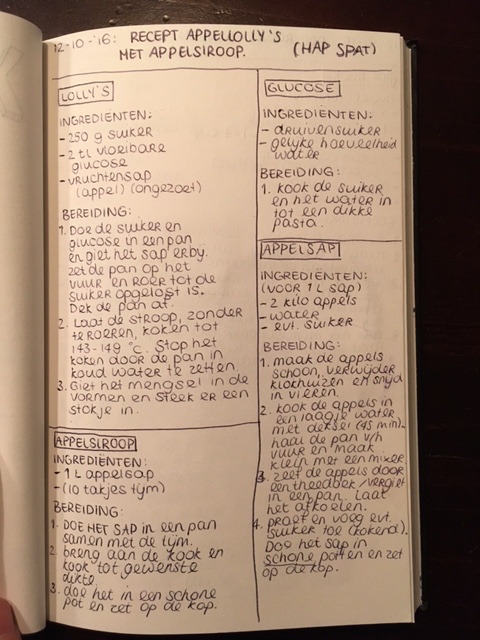 12-10-'16: RECEPT APPELLOLLY'S
MET APPELSIROOP. (HAP SPAT)
LOLLY'S
INGREDIËNTEN:
- 250 g suiker
- 2 tl vloeibare
glucose
- vruchtensap
(appel) (ongezoet)
BEREIDING:
1. Doe de suiker en
glucose in een pan
en giet het sap erby.
zet de pan op het
vuur en roer tot de
suiker opgelost is.
Dek de pan af.
2. Laat de stroop, zonder
te roeren, koken tot
143-149 °C. Stop het
koken door de pan in
koud water te zetten.
3. Giet het mengsel in de
vormen en steek er een
stokje in.
APPELSIROOP
INGREDIËNTEN:
- 1 L appelsap
- (10 takjes tijm)
BEREIDING:
1. DOE HET SAP in een pan
samen met de tijm.
2. breng aan de kook en
kook tot gewenste
dikte.
3. doe het in een schone
pot en zet op de kop.
GLUCOSE
INGREDIËNTEN:
- druivensuiker
- gelyke hoeveelheid
water
BEREIDING:
1. kook de suiker
en het water in
tot een dikke
pasta.
APPELSAP
INGREDIËNTEN:
(voor 1 L sap)
- 2 kilo appels
- water
- evt. suiker
BEREIDING:
1. maak de appels
schoon, verwijder
klokhuizen en snijd
in vieren.
2. kook de appels in
een laagje water
met deksel (45 min).
haal de pan v/h
vuur en maak
klein met een mixer
3. zeef de appels door
een theedoek/vergiet
in een pan. Laat
het afkoelen.
4. proef en voeg evt.
suiker toe (kokend).
Doe het sap in
schone potten en zet
op de kop.